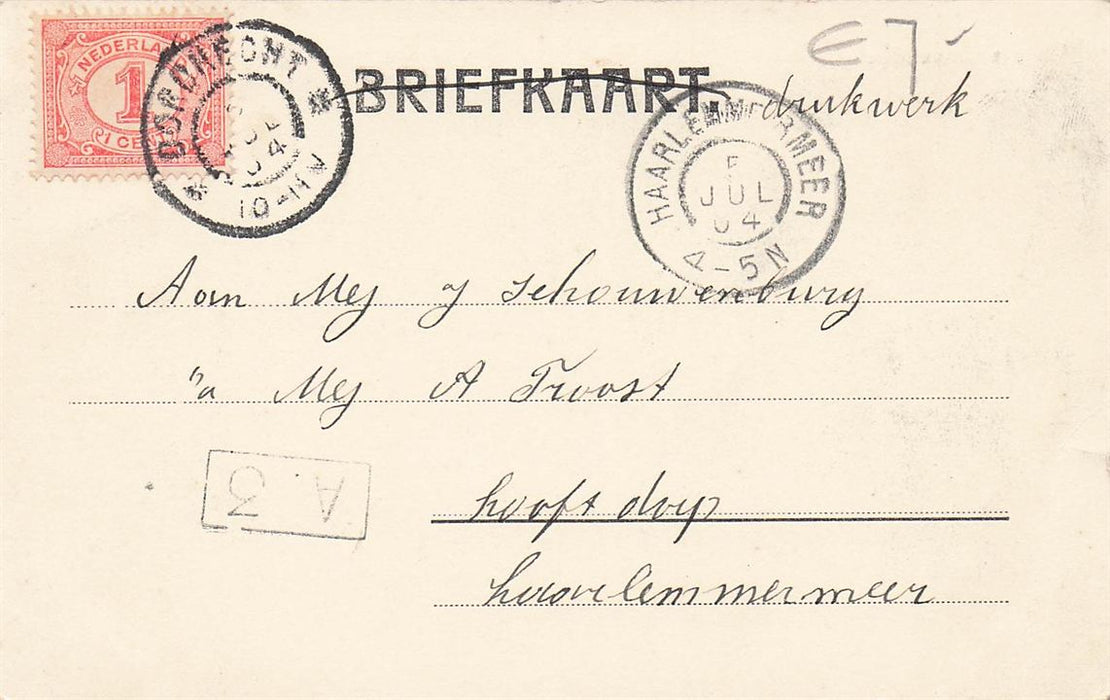 NEDERLAND
1
1 CENT
DORDRECHT
JUL
04
10-11V
BRIEFKAART. drukwerk
€ 7,-
HAARLEMMERMEER
5
JUL
04
4-5N
Aan Mej J Schouwenburg
"a Mej A Troost
A 3
hooft dorp
haarlemmermeer